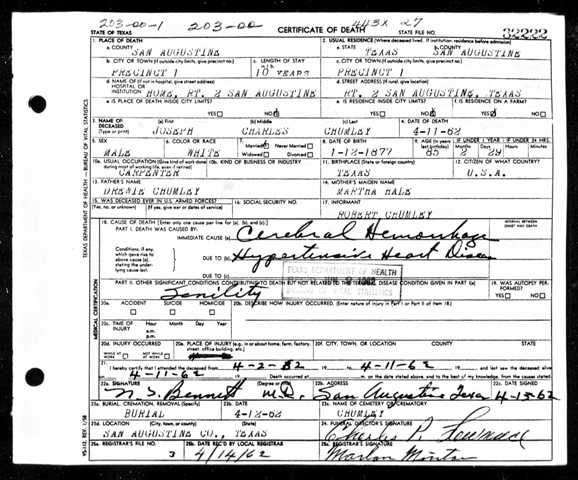 203-00-1 203-00 443X 27
STATE OF TEXAS CERTIFICATE OF DEATH STATE FILE NO. 32222
1. PLACE OF DEATH 2. USUAL RESIDENCE (Where deceased lived. If institution: residence before admission)
a. COUNTY a. STATE b. COUNTY
SAN AUGUSTINE TEXAS SAN AUGUSTINE
b. CITY OR TOWN (If outside city limits, give precinct no.) c. LENGTH OF STAY c. CITY OR TOWN (If outside city limits, give precinct no.)
PRECINCT 1 10 YEARS PRECINCT 1
d. NAME OF (If not in hospital, give street address) d. STREET ADDRESS (If rural, give location)
HOSPITAL OR
INSTITUTION HOME, RT. 2 SAN AUGUSTINE RT. 2 SAN AUGUSTINE, TEXAS
e. IS PLACE OF DEATH INSIDE CITY LIMITS? e. IS RESIDENCE INSIDE CITY LIMITS? f. IS RESIDENCE ON A FARM?
YES NO YES NO YES NO
3. NAME OF DECEASED (a) First (b) Middle (c) Last 4. DATE OF DEATH
(Type or print) JOSEPH CHARLES CHUMLEY 4-11-62
5. SEX 6. COLOR OR RACE 7. Married Never Married 8. DATE OF BIRTH 9. AGE (In years last birthday) IF UNDER 1 YEAR IF UNDER 24 HRS.
MALE WHITE Widowed Divorced 1-12-1877 85 2 29
10a. USUAL OCCUPATION (Give kind of work done during most of working life, even if retired) 10b. KIND OF BUSINESS OR INDUSTRY 11. BIRTHPLACE (State or foreign country) 12. CITIZEN OF WHAT COUNTRY?
CARPENTER TEXAS U.S.A.
13. FATHER'S NAME 14. MOTHER'S MAIDEN NAME
DRENIE CHUMLEY MARTHA HALE
15. WAS DECEASED EVER IN U.S. ARMED FORCES? 16. SOCIAL SECURITY NO. 17. INFORMANT
(Yes, no, or unknown) (If yes, give war or dates of service) ROBERT CHUMLEY
18. CAUSE OF DEATH (Enter only one cause per line for (a), (b), and (c).) INTERVAL BETWEEN ONSET AND DEATH
PART I. DEATH WAS CAUSED BY:
IMMEDIATE CAUSE (a) Cerebral Hemorrhage
Conditions, if any, which gave rise to above cause (a), stating the underlying cause last. DUE TO (b) Hypertensive Heart Disease
DUE TO (c)
TEXAS DEPARTMENT OF HEALTH
PART II. OTHER SIGNIFICANT CONDITIONS CONTRIBUTING TO DEATH BUT NOT RELATED TO THE TERMINAL DISEASE CONDITION GIVEN IN PART I (a) 19. WAS AUTOPSY PERFORMED?
Senility YES NO
20a. ACCIDENT SUICIDE HOMICIDE 20b. DESCRIBE HOW INJURY OCCURRED. (Enter nature of injury in Part I or Part II of item 18)
20c. TIME OF INJURY Hour Month Day Year
20d. INJURY OCCURRED 20e. PLACE OF INJURY (e.g., in or about home, farm, factory, street, office building, etc.) 20f. CITY, TOWN, OR LOCATION COUNTY STATE
WHILE AT WORK NOT WHILE AT WORK
21. I hereby certify that I attended the deceased from 4-2-62 to 4-11-62 and last saw the deceased alive
4-11-62 Death occurred at m. on the date stated above, and to the best of my knowledge, from the causes stated
22a. SIGNATURE (Degree or title) 22b. ADDRESS 22c. DATE SIGNED
N. S. Bennett M.D. San Augustine Texas 4-13-62
23a. BURIAL, CREMATION, REMOVAL (Specify) 23b. DATE 23c. NAME OF CEMETERY OR CREMATORY
BURIAL 4-12-62 CHUMLEY
23d. LOCATION (City, town, or county) (State) 24. FUNERAL DIRECTOR'S SIGNATURE
SAN AUGUSTINE CO., TEXAS Charles
25a. REGISTRAR'S FILE NO. 25b. DATE REC'D BY LOCAL REGISTRAR 25c. REGISTRAR'S SIGNATURE
3 4/14/62 Marlon
TEXAS DEPARTMENT OF HEALTH — BUREAU OF VITAL STATISTICS
MEDICAL CERTIFICATION